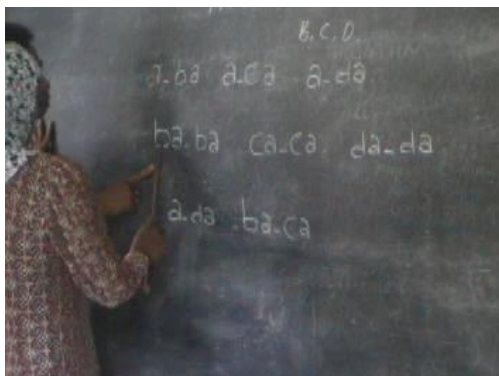 B.C.D.
a-ba a.Ca a-da
ba.ba Ca-Ca. da-da
a.da .ba-Ca